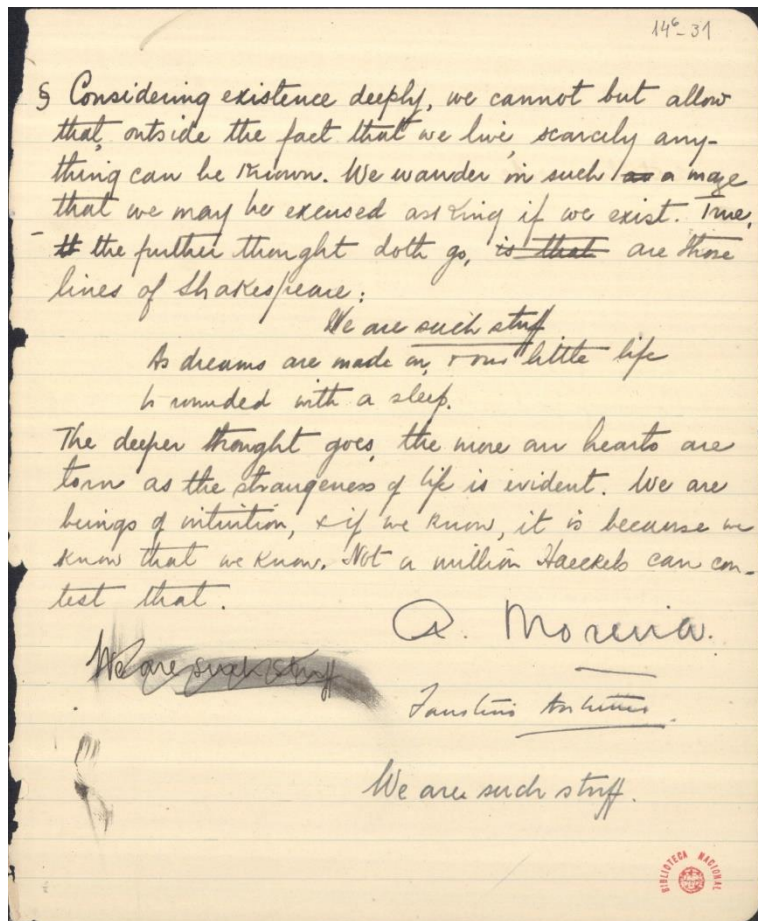 14⁶-31
§ Considering existence deeply, we cannot but allow
that, outside the fact that we live, scarcely any-
thing can be known. We wander in such as a maze
that we may be excused asking if we exist. True,
the further thought doth go, is that are those
lines of Shakespeare:
We are such stuff
As dreams are made on, & our little life
Is rounded with a sleep.
The deeper thought goes, the more our hearts are
torn as the strangeness of life is evident. We are
beings of intuition, & if we know, it is because we
know that we know. Not a million Haeckels can con-
test that.
A. Moreira.
We are such stuff
Faustino Antunes.
We are such stuff.
BIBLIOTECA NACIONAL